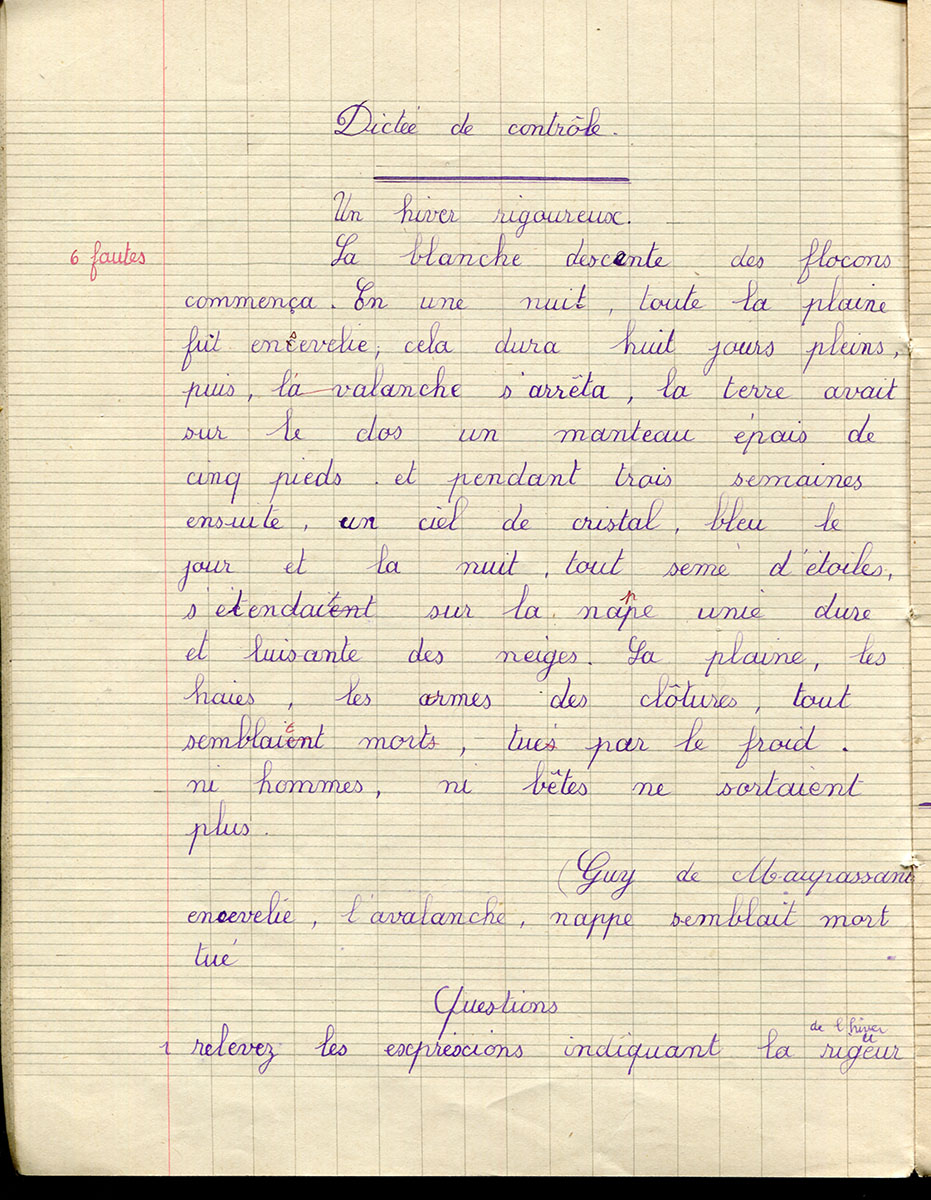 Dictée de contrôle.
Un hiver rigoureux.
6 fautes
La blanche descente des flocons
commença. En une nuit, toute la plaine
fût encevelie, cela dura huit jours pleins,
puis, la valanche s'arrêta, la terre avait
sur le dos un manteau épais de
cinq pieds. et pendant trois semaines
ensuite, un ciel de cristal, bleu le
jour et la nuit, tout semé d'étoiles,
s'étendaient sur la nape unie dure
et luisante des neiges. La plaine, les
haies, les ormes des clôtures, tout
semblaient morts, tués par le froid.
ni hommes, ni bêtes ne sortaient
plus.
(Guy de Maupassant
encevelie, l'avalanche, nappe semblait mort
tué
Questions
de l'hiver
1 relevez les exprescions indiquant la rigueur